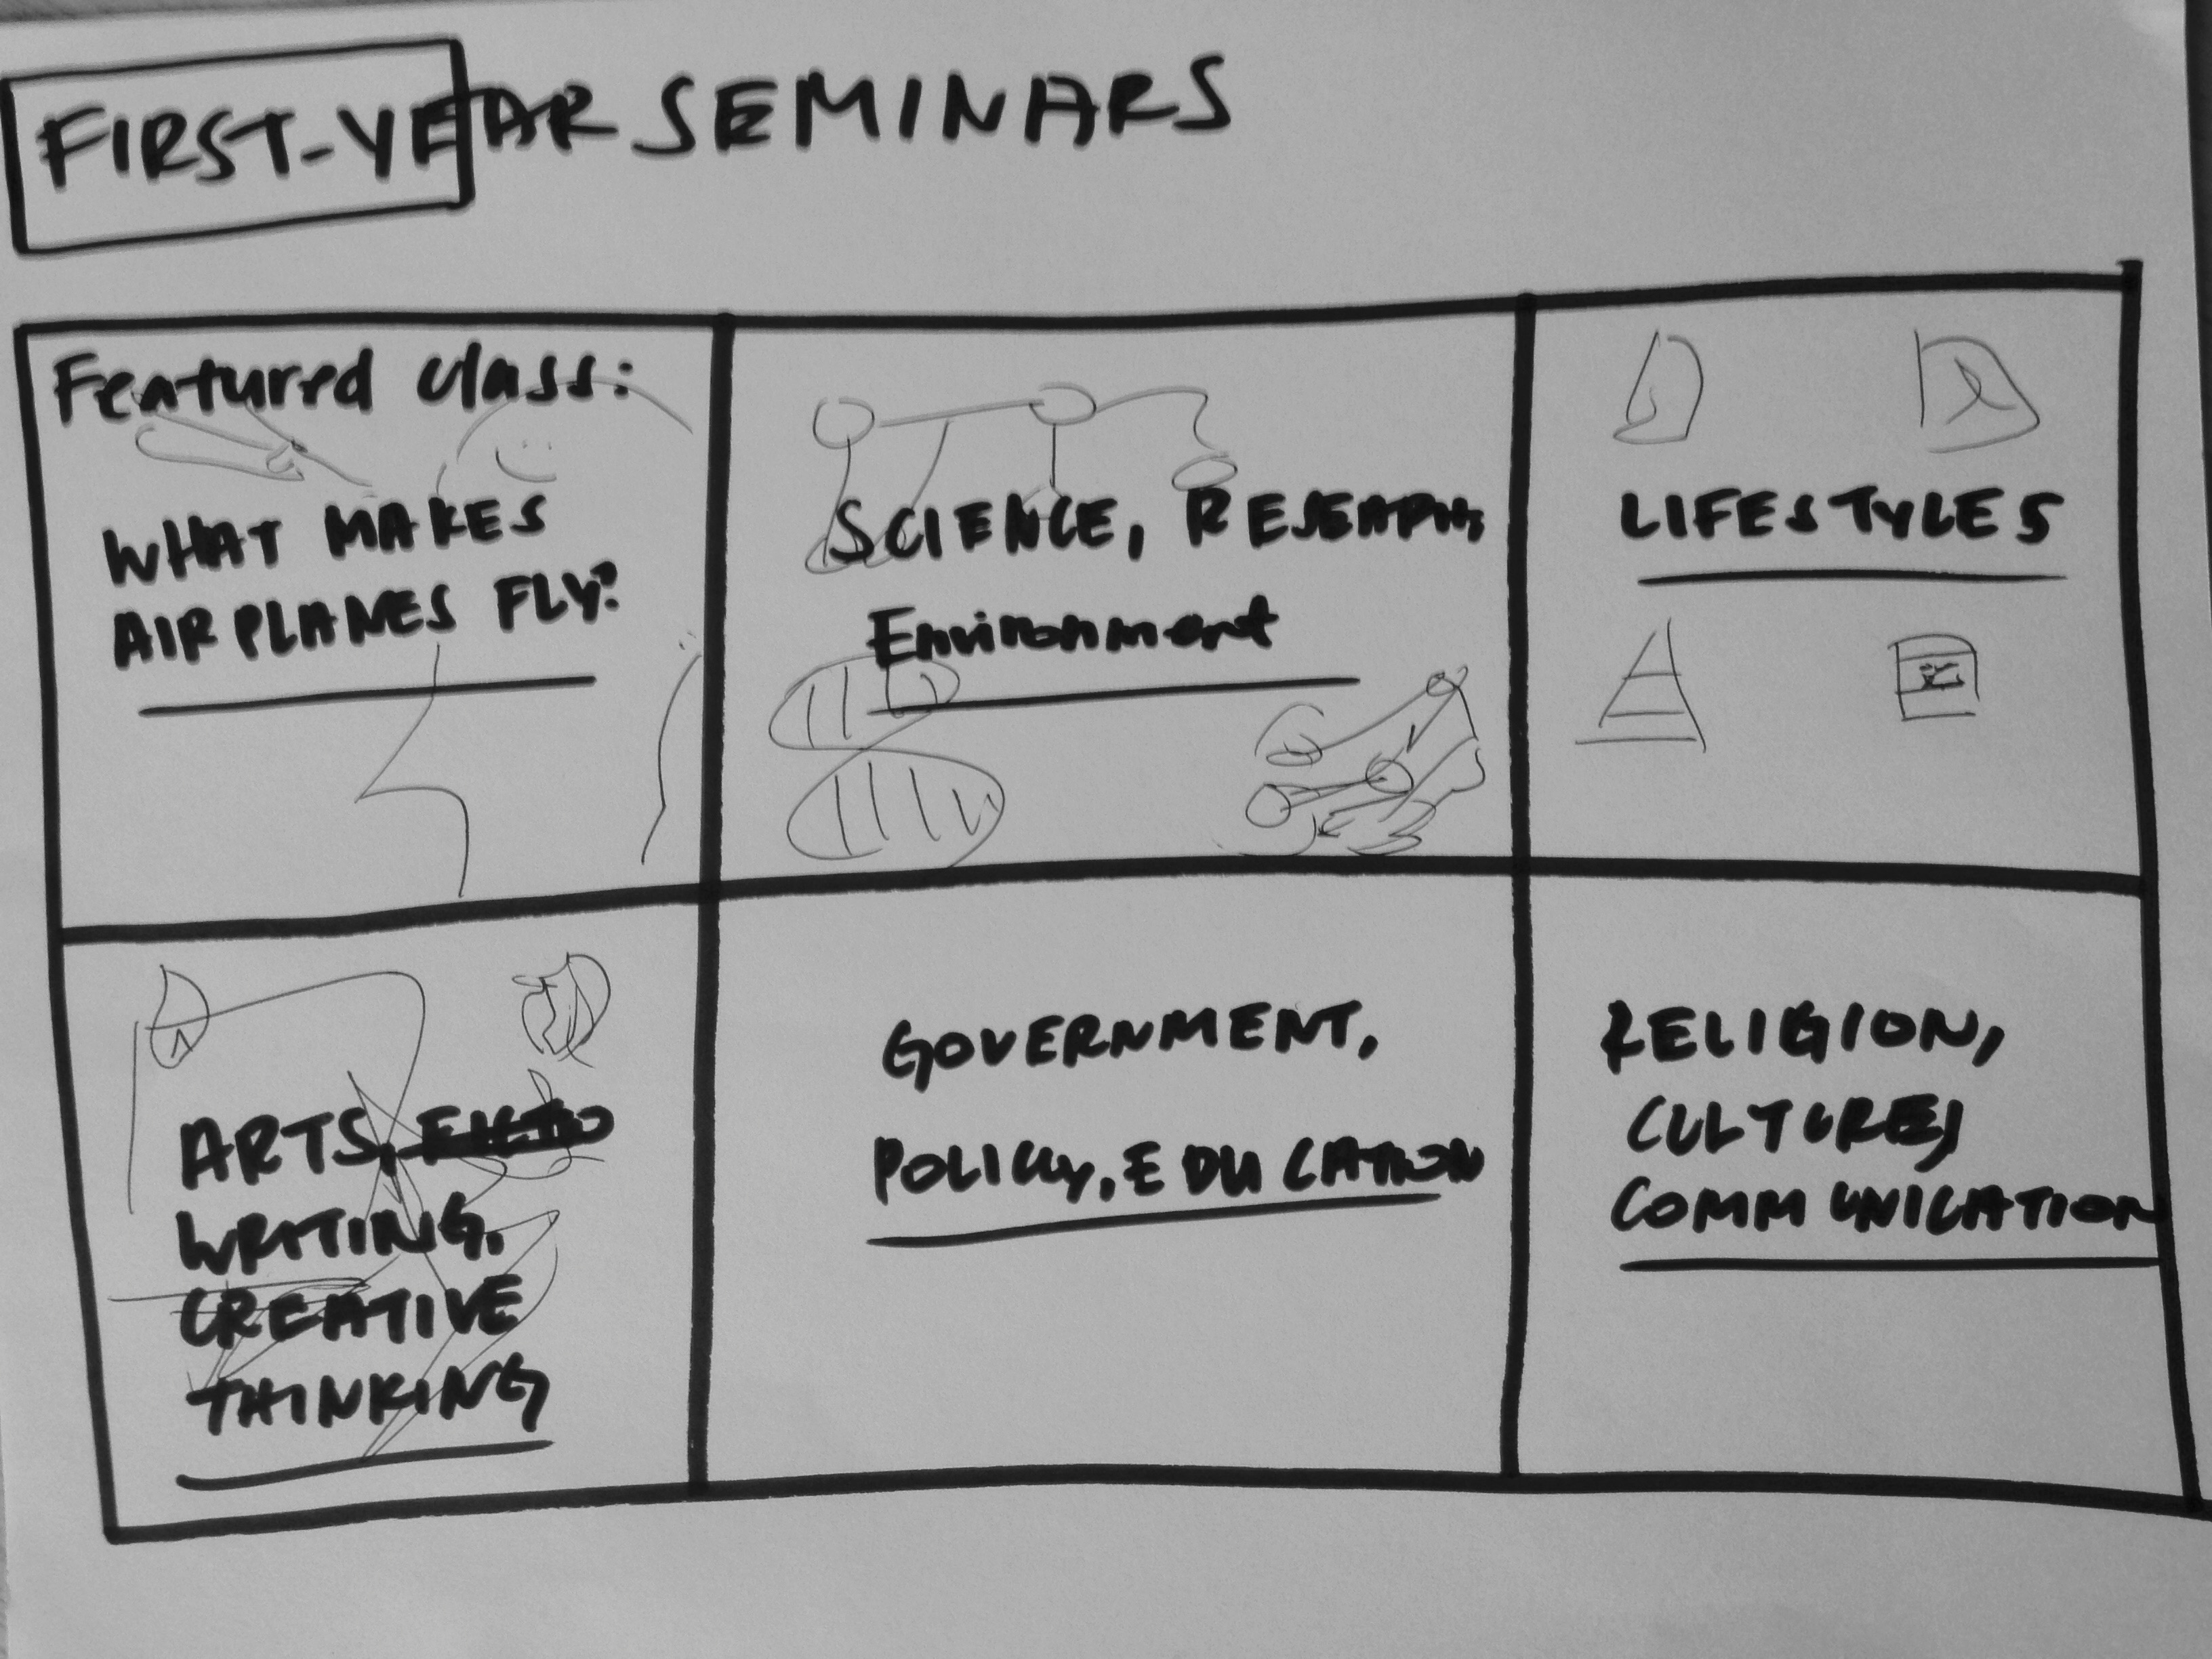 FIRST-YEAR SEMINARS
Featured class:
WHAT MAKES
AIRPLANES FLY?
SCIENCE, RESEARCH,
Environment
LIFESTYLES
ARTS,
WRITING,
CREATIVE
THINKING
GOVERNMENT,
POLICY, EDUCATION
RELIGION,
CULTURE,
COMMUNICATION